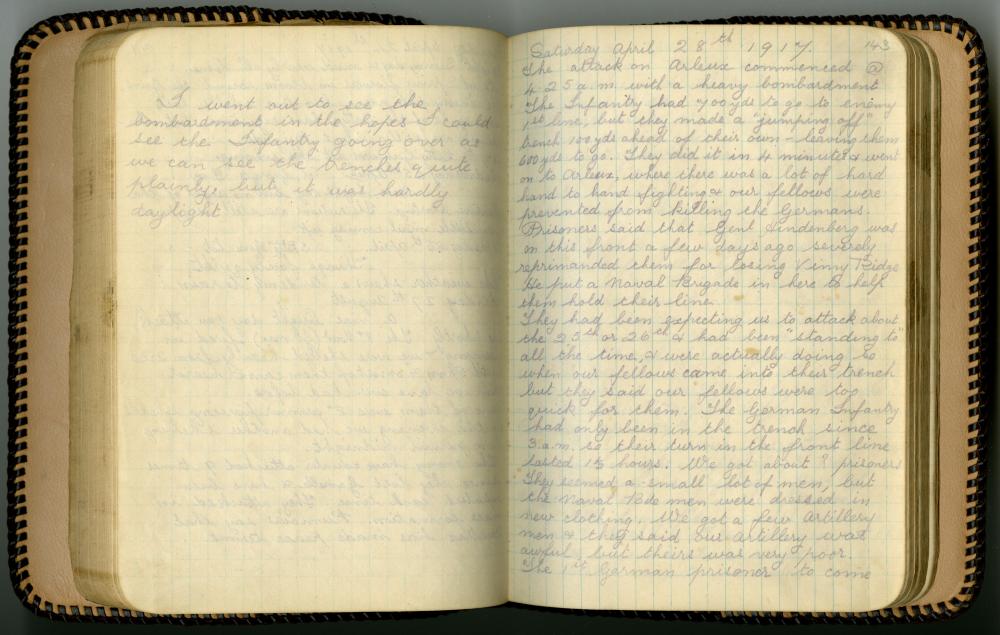 I went out to see the
bombardment in the hopes I could
see the Infantry going over as
we can see the trenches quite
plainly, but it was hardly
daylight
Saturday April 28th 1917. 143
The attack on Arleux commenced @
4.25 a.m. with a heavy bombardment
The Infantry had 700 yds to go to enemy
1st line, but they made a "jumping off"
trench 100 yds ahead of their own - leaving them
600 yds to go. They did it in 4 minutes & went
on to Arleux, where there was a lot of hard
hand to hand fighting & our fellows were
prevented from killing the Germans.
Prisoners said that Genl Hindenberg was
on this front a few days ago severely
reprimanded them for losing Vimy Ridge
He put a Naval Brigade in here to help
them hold their line.
They had been expecting us to attack about
the 25th or 26th & had been "standing to"
all the time, & were actually doing so
when our fellows came into their trench
but they said our fellows were too
quick for them. The German Infantry
had only been in the trench since
3.a.m. so their turn in the front line
lasted 1½ hours. We got about ? prisoners
They seemed a small lot of men, but
the Naval Bde men were dressed in
new clothing. We got a few Artillery
men & they said our Artillery was
awful, but theirs was very poor.
The 1st German prisoner to come